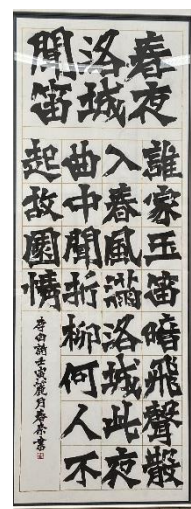 春夜
洛城
聞笛
誰家玉笛暗飛聲散
入春風滿洛城此夜
曲中聞折柳何人不
起故園情
李白詩壬寅月書